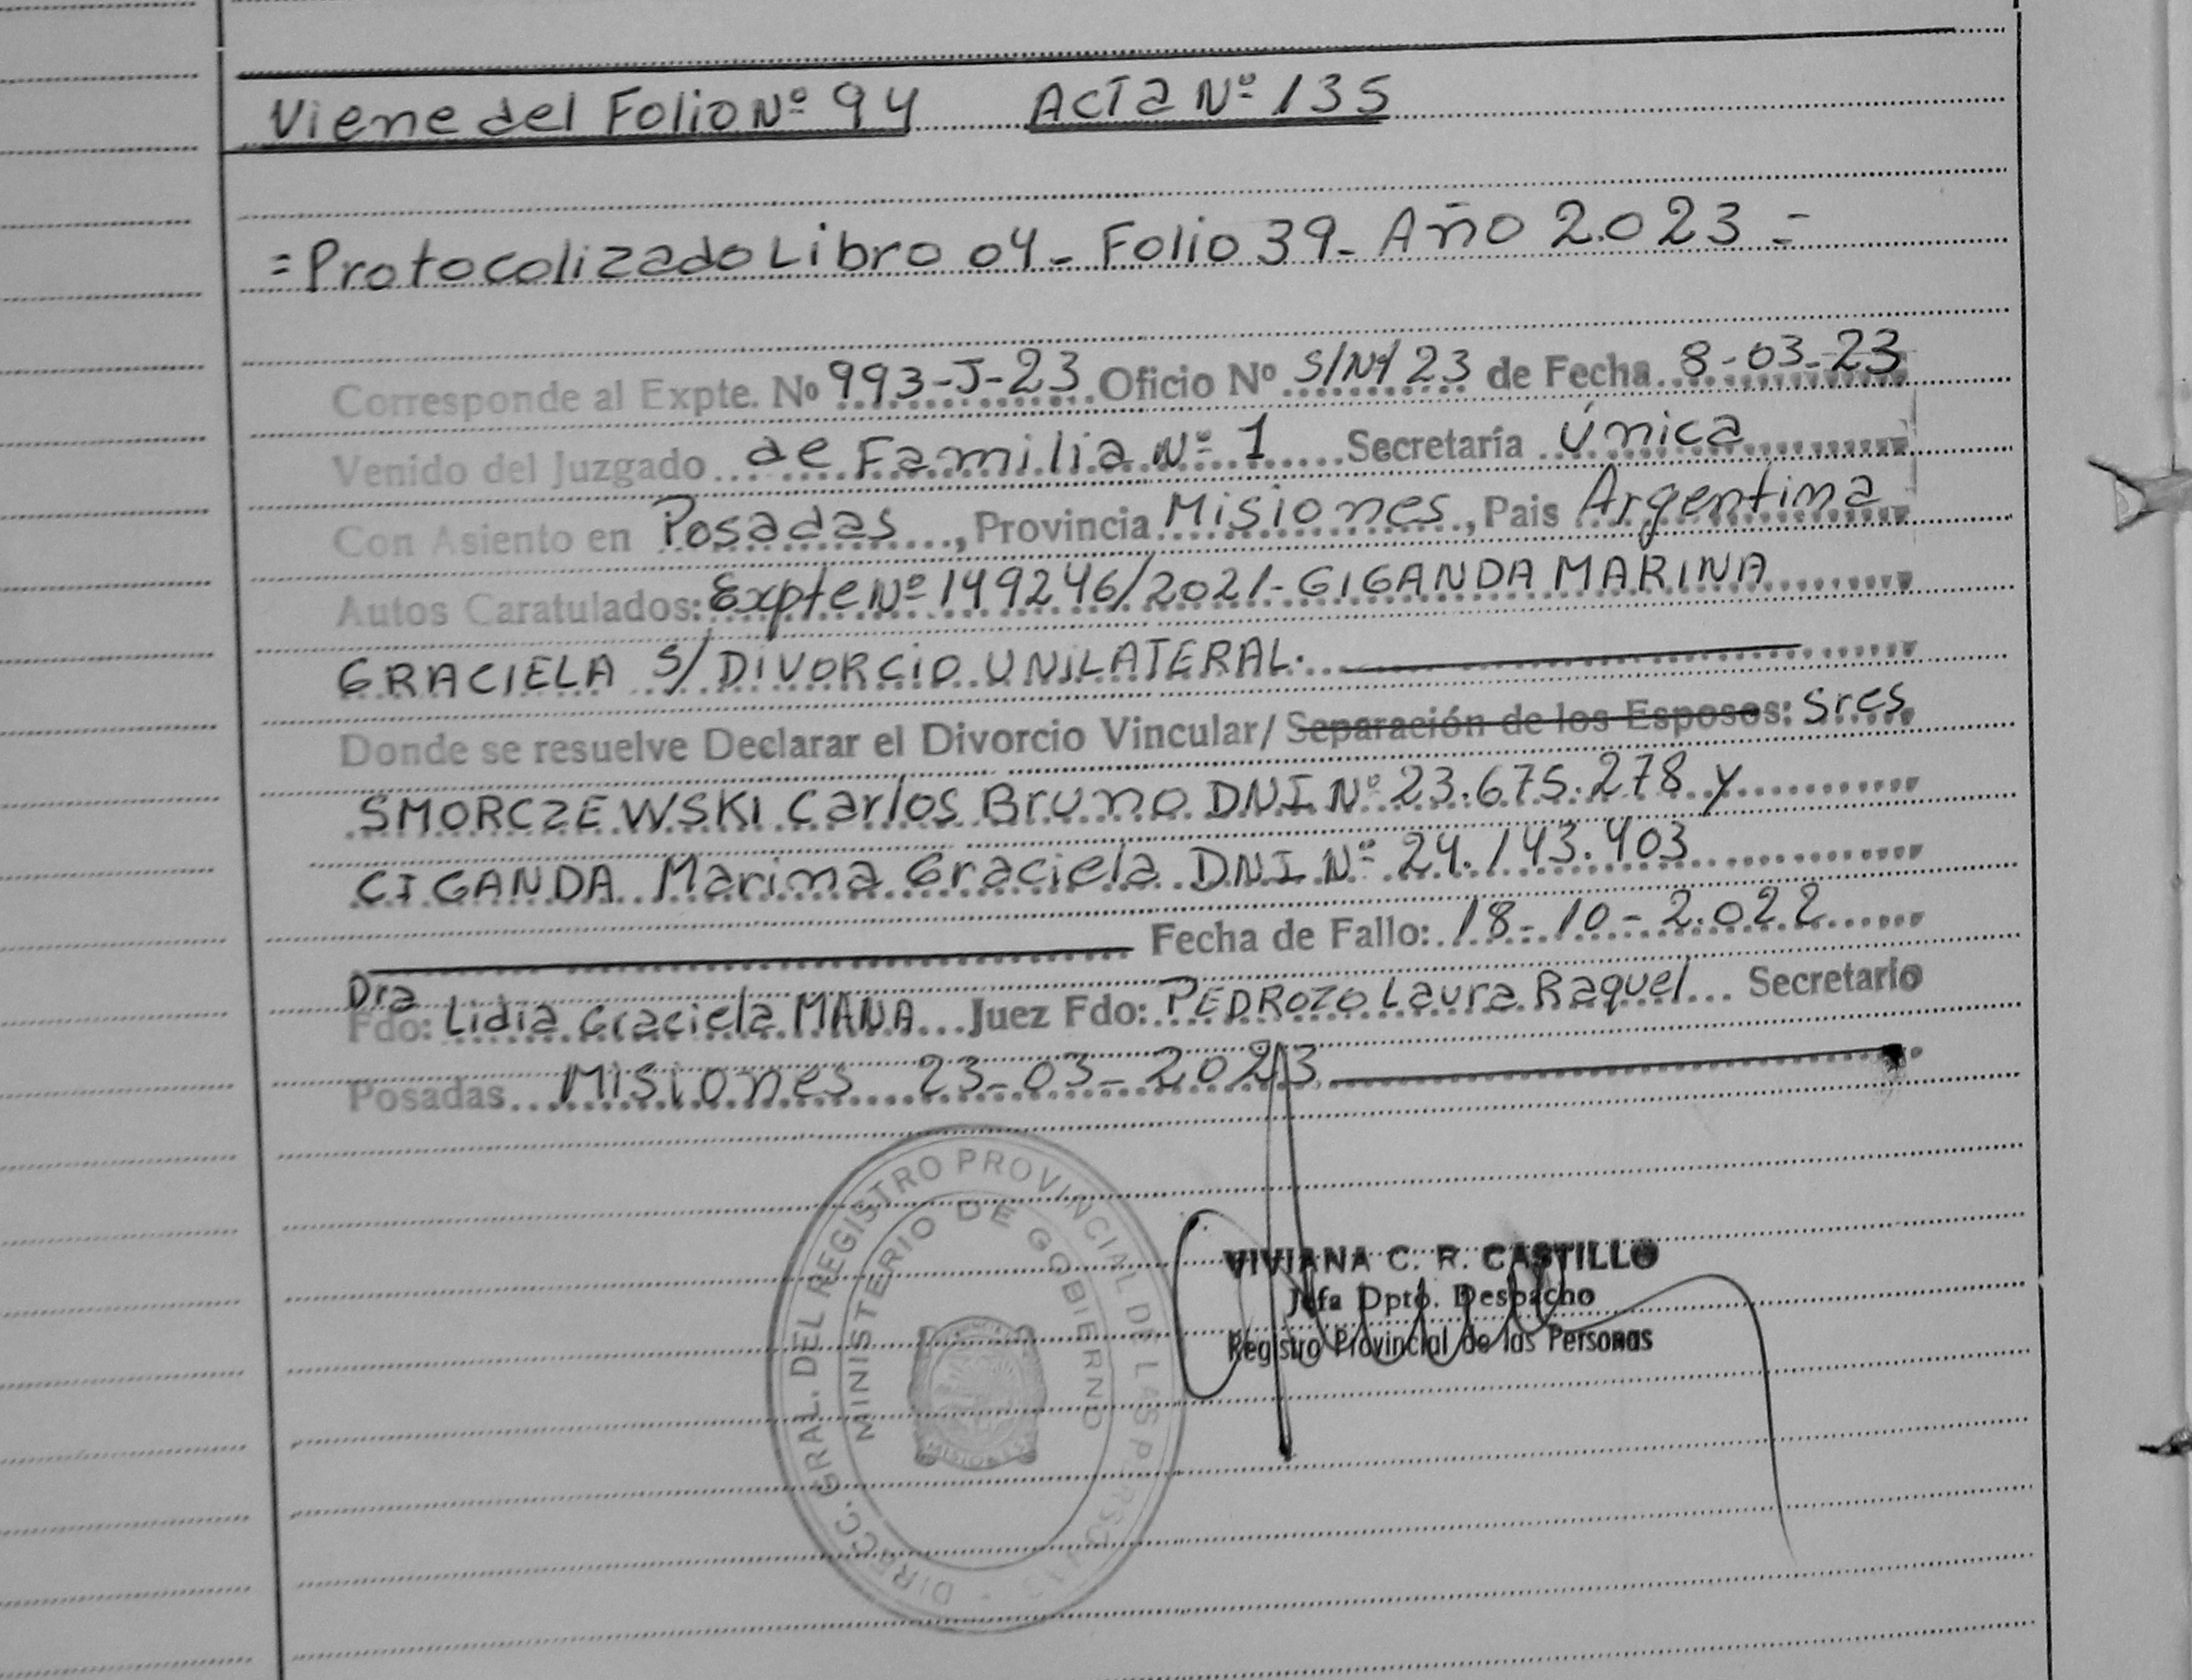 Viene del Folio Nº 94 Acta Nº 135
= Protocolizado Libro 04 - Folio 39 - Año 2.023 =
Corresponde al Expte. Nº 993-J-23 Oficio Nº S/Nº/23 de Fecha 8-03-23
Venido del Juzgado de Familia Nº 1 Secretaría Única
Con Asiento en Posadas, Provincia Misiones, Pais Argentina
Autos Caratulados: Expte Nº 149246/2021 - GIGANDA MARINA
GRACIELA S/ DIVORCIO UNILATERAL.
Donde se resuelve Declarar el Divorcio Vincular/ Separación de los Esposos: Sres
SMORCZEWSKI Carlos Bruno DNI Nº 23.675.278 y
CIGANDA Marina Graciela DNI Nº 24.143.403
Fecha de Fallo: 18-10-2.022
Dra
Fdo: Lidia Graciela MANA Juez Fdo: PEDROZO Laura Raquel Secretario
Posadas Misiones 23-03-2023
DIRECC. GRAL. DEL REGISTRO PROVINCIAL DE LAS PERSONAS
MINISTERIO DE GOBIERNO
MISIONES
VIVIANA C. R. CASTILLO
Jefa Dpto. Despacho
Registro Provincial de las Personas